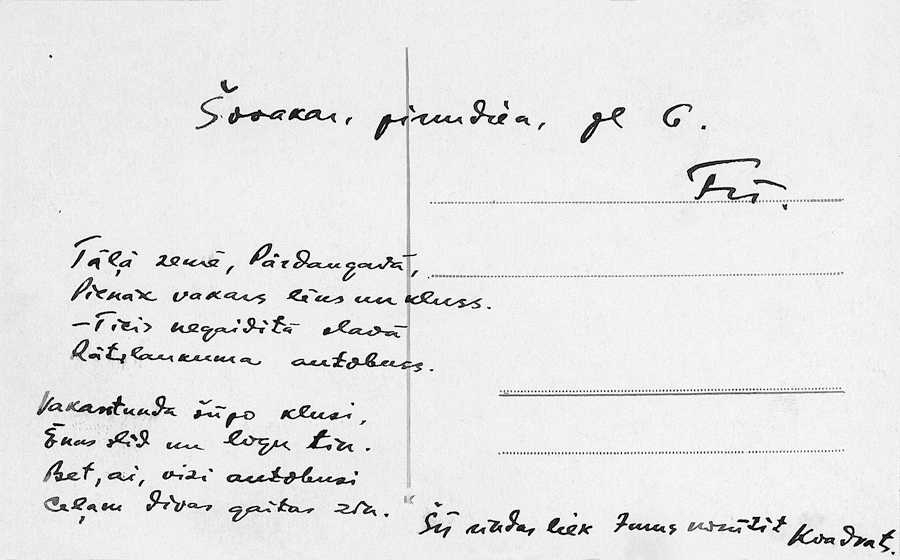 Šovakar, pirmdien, pl 6.
Tālā zemē, Pārdaugavā,
Pienāk vakars lēns un kluss.
– Ticis negaidītā slavā
Rātslaukuma autobuss.
Vakarstunda šūpo klusi,
Ēnas slīd un logu tin.
Bet, ai, visi autobusi
Ceļam divas gaitas zin.
Šīs rindas liek Jums nosūtīt Kvadrats.